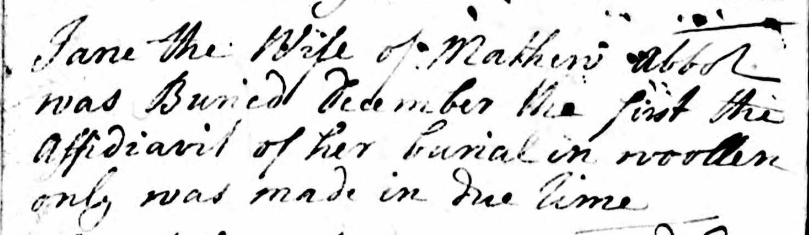 Jane the Wife of Mathew Abbot
was Buried December the first the
Affidiavit of her burial in woollen
only was made in due time